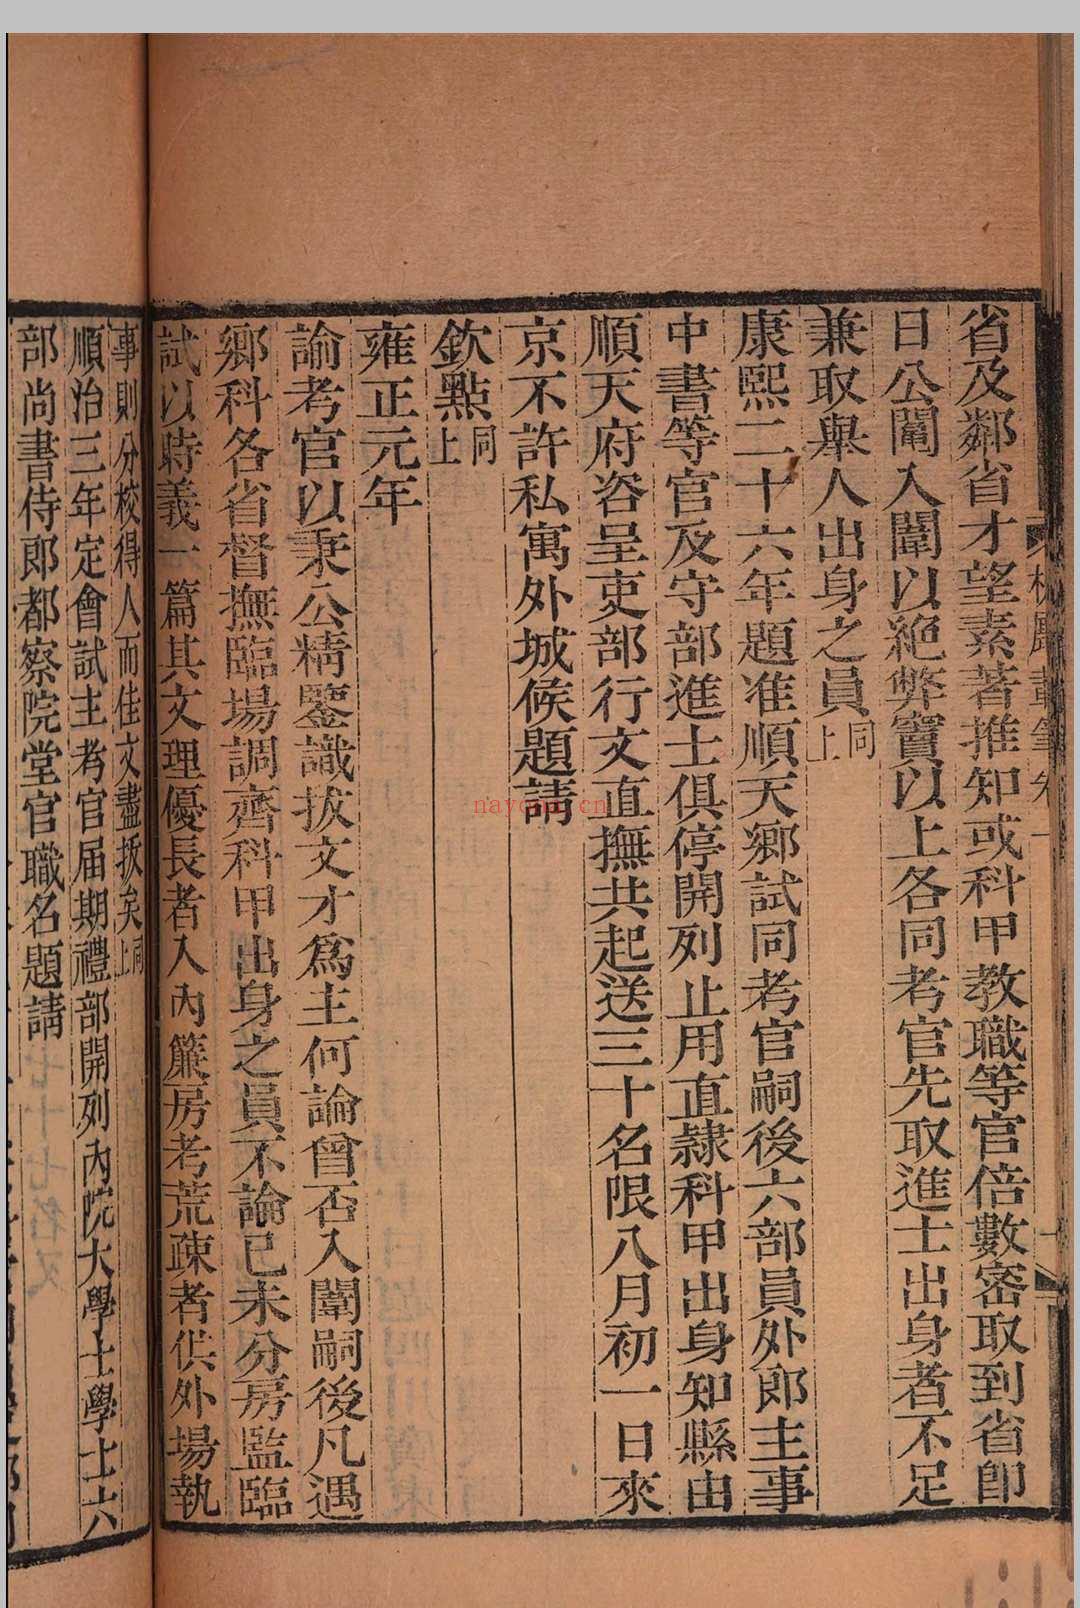 省及鄰省才望素著推知或科甲教職等官倍數密取到省即
日公鬮入闈以絶弊竇以上各同考官先取進士出身者不足
兼取舉人出身之員同上
康熙二十六年題准順天鄉試同考官嗣後六部員外郎主事
中書等官及守部進士俱停開列止用直隷科甲出身知縣由
順天府咨呈吏部行文直撫共起送三十名限八月初一日來
京不許私寓外城候題請
欽點同上
雍正元年
諭考官以秉公精鑒識拔文才爲主何論曾否入闈嗣後凡遇
鄉科各省督撫臨場調齊科甲出身之員不論已未分房監臨
試以時義一篇其文理優長者入內簾房考荒疎者供外場執
事則分校得人而佳文盡拔矣同上
順治三年定會試主考官届期禮部開列內院大學士學士六
部尚書侍郎都察院堂官職名題請
nayona.cn